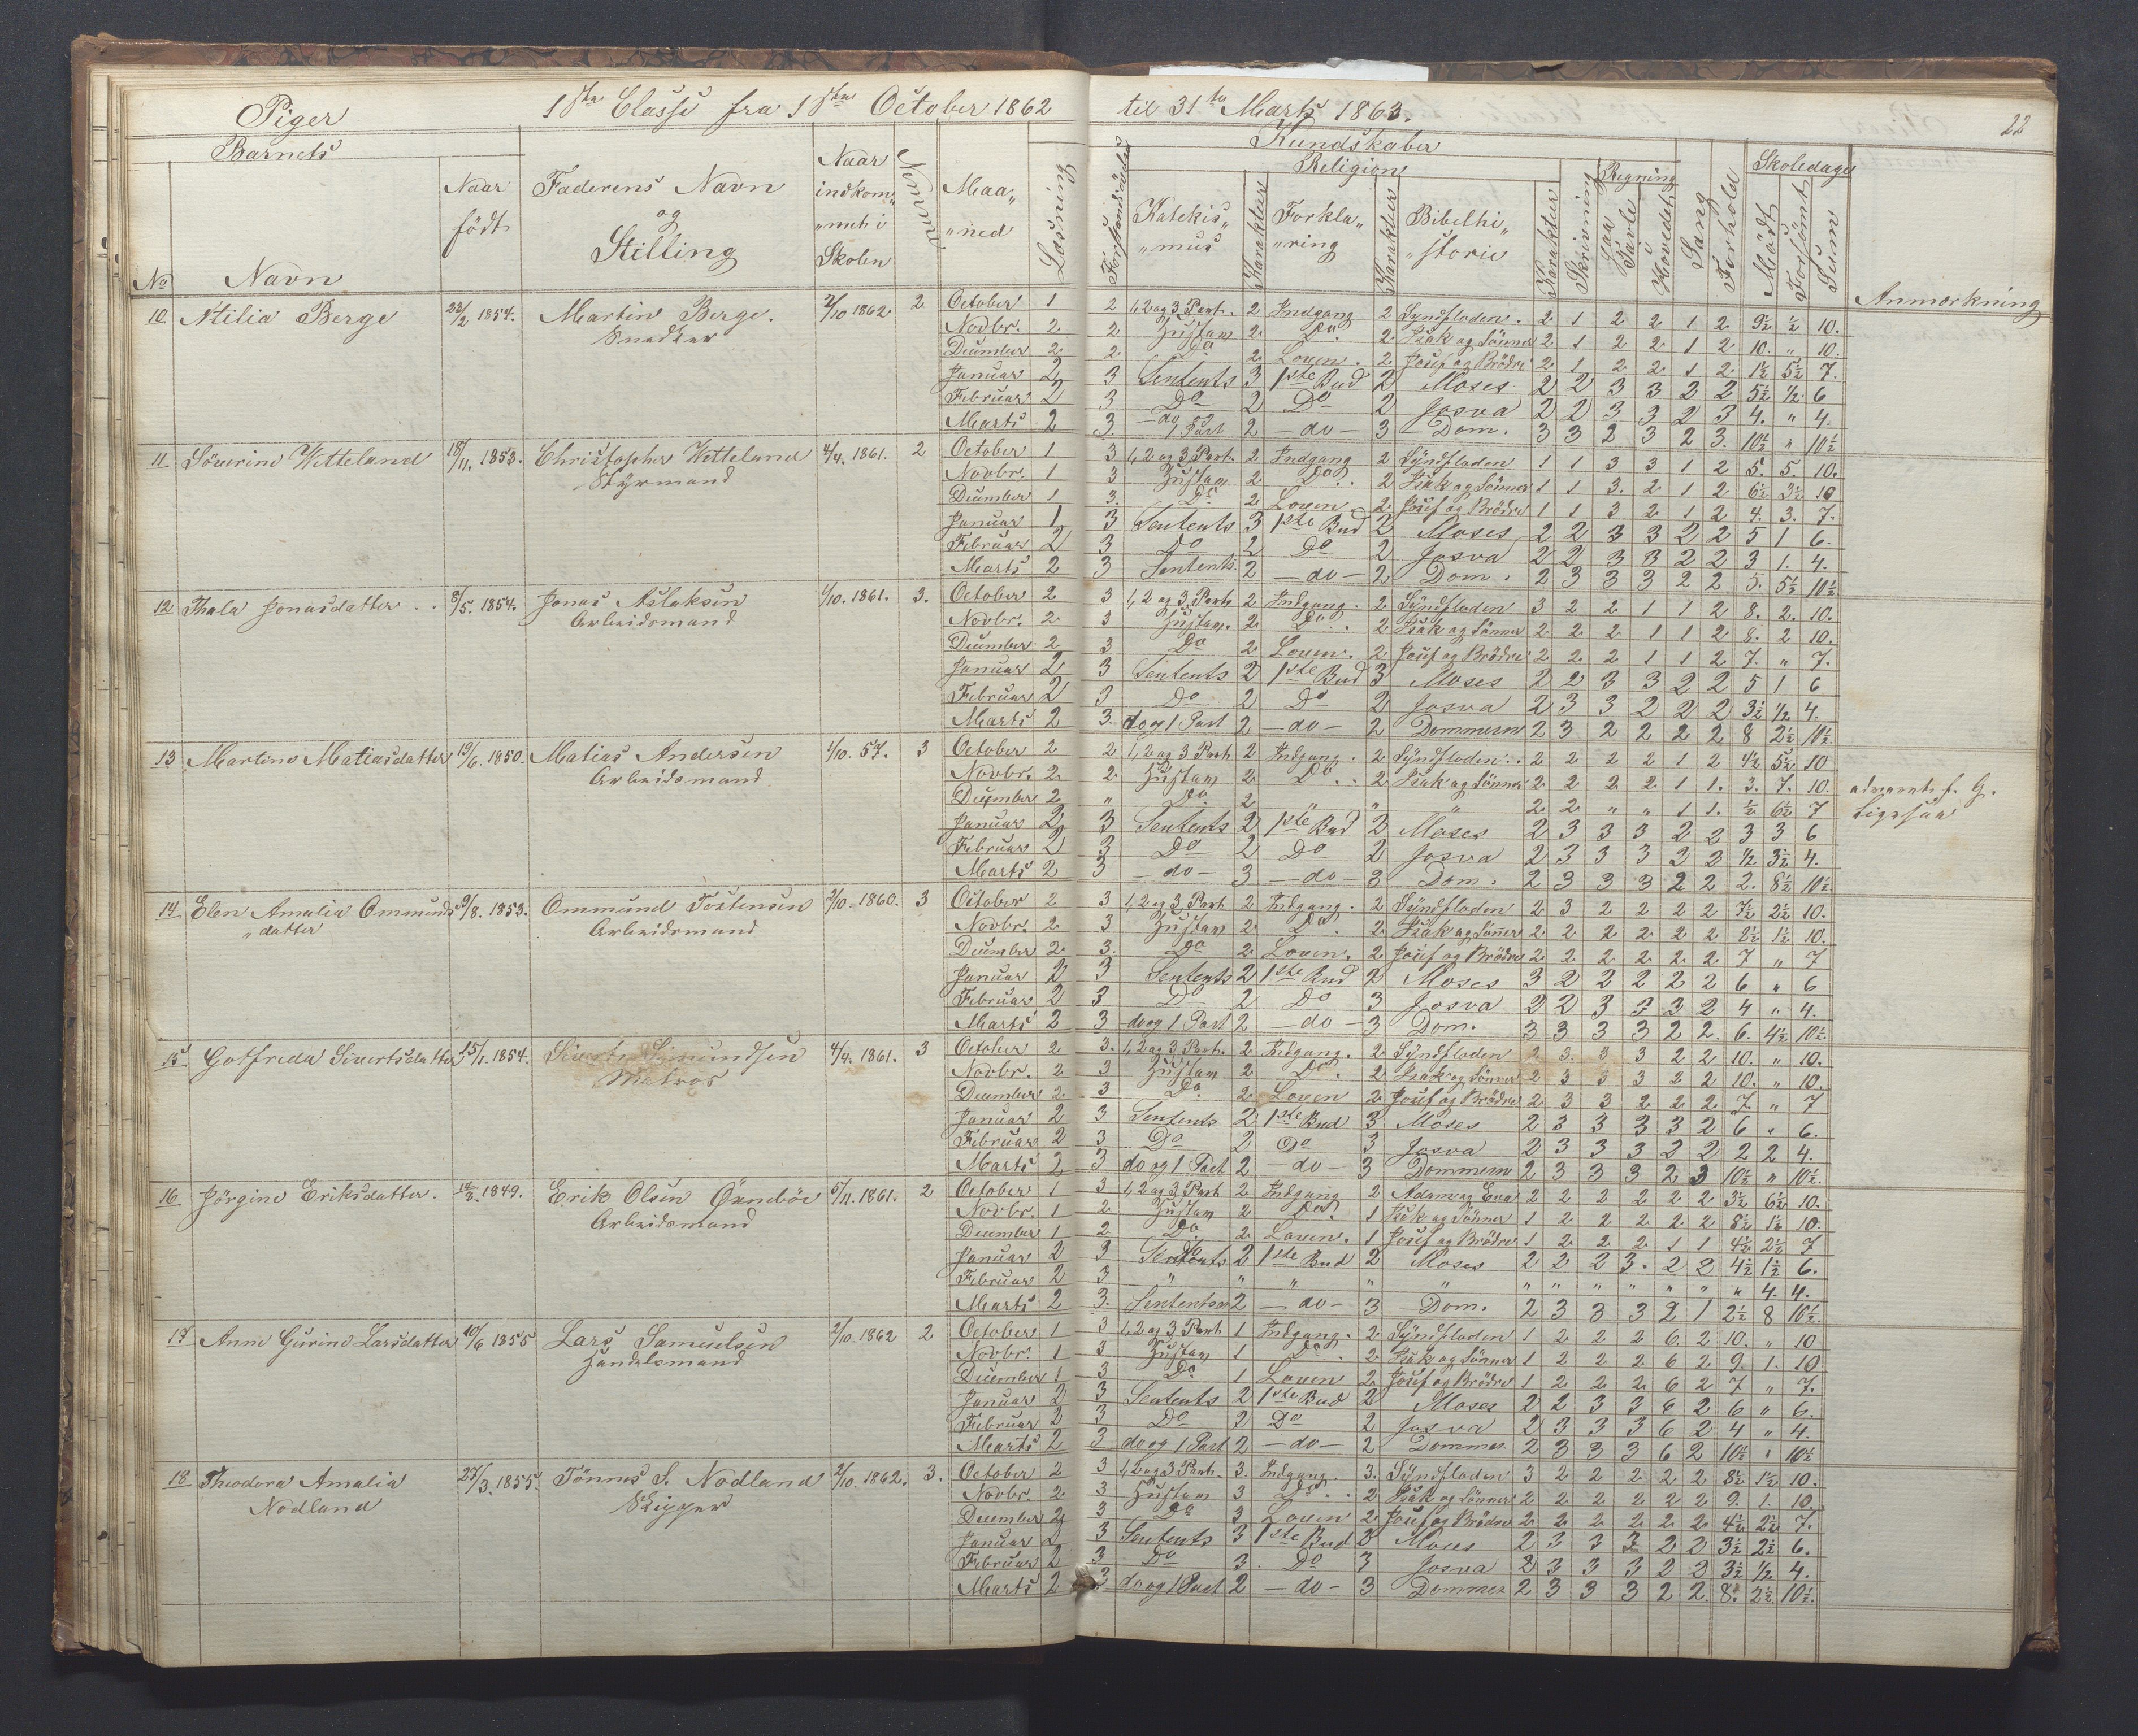 Piger 1ste Classe fra 1ste October 1862 til 31te Marts 1863.
22
Barnets
Kundskaber
Religion
Regning
Skoledage
No
Navn
Naar født
Faderens Navn og Stilling
Naar indkom„ „met i Skolen
Maa„ „ned
Læsning
Forstandsøvelse
Katekis„ „mus
Karakter
Forkla„ „ring
Karakter
Bibelhi„ „storie
Karakter
Skrivning
Paa Tavle
Hovedet
Sang
Forhold
Mødt
Forsømt
Sum
Anmærkning
10. Atilia Berge 23/2 1854. Martin Berge. 2/10 1862 2 October 1 2 1, 2 og 3 Part. 2 Indgang 2 Syndfloden. 2 1 2 2 1 2 9½ ½ 10.
Snedker Novbr. 2 2 2 Do. 2 Isak og Sønner 2 1 2 2 1 2 10. „ 10.
December 2 2 Do 2 Loven. 2 Josef og Brødre 2 1 2 2 1 2 1½ 5½ 7.
Januar 2 3 Sentents 3 1ste Bud 2 Moses 2 2 3 3 2 2 5½ ½ 6
Februar 2 3 Do 2 Do 2 Josva 2 2 3 3 2 3 4. „ 4.
Marts 2 3 do og 1 Part 2 do 3 Dom. 3 3 2 3 2 3 10½ „ 10½
11 Söverine Vitteland 18/11. 1853. Christopher Vitteland 4/4. 1861. 2 October 1 3 1, 2 og 3 Part. 2 Indgang 2 Syndfloden 1 1 3 3 1 2 5. 5 10.
Styrmand Novbr. 1 3 2 Do. 2 Isak og Sønner 1 1 3. 2 1 2 6½ 3½ 10
December 1 3. Do 2 Loven. 2 Josef og Brødre 1 1 3 2 1 2 4. 3. 7.
Januar 1 3 Sentents 3 1ste Bud 2 Moses 2 2 3 3 2 2 5 1 6.
Februar 2 3 Do 2 Do 2 Josva 2 2 3 3 2 2 3 1. 4.
Marts 2 3 Sentents. 2 do 2 Dom. 2 3 3 3 2 2 5½ 10½
12 Thala Jonasdatter 8/5. 1854. Jonas Aslaksen 1/10. 1861. 3. October 2 3 1, 2 og 3 Part 2 Indgang. 2 Syndfloden 3 2 2 1 1 2 8. 2. 10.
Arbeidsmand Novbr. 2 3 2 Do. 2 Isak og Sønner 2 2 2 1 1 2 8. 2 10.
December 2 3 Do 2 Loven. 2 Josef og Brødre 2 2 2 1 1 2 7. „ 7.
Januar 2 3 Sentents 2 1ste Bud 3 Moses 2 2 3 3 2 2 5 1 6
Februar 2 3 Do 2 Do 2 Josva 2 3 3 2 2 2 3½ ½ 4.
Marts 2 3. do og 1 Part 2 do 2 Dommerne 2 3 2 2 2 2 8 2½ 10½
13 Martine Matiasdatter 19/6. 1850. Matias Andersen 1/10. 57. 3 October 2 2 1, 2 og 3 Part 2 Indgang. 2 Syndfloden. 2 2 2 2 1 2 4½ 5½ 10
Arbeidsmand Novbr. 2 2 2 Do. 2 Isak og Sønner 2 2 2 2 1 1. 3. 7. 10.
December 2 „ Do. 2 „ „ „ 2 2 „ „ 1 1. ½ 6½ 7
Januar 2 3 Sentents 2 1ste Bud 2 Moses 2 3 3 3 2 2 3 3 6
Februar 2 3 Do 2 Do 2 Josva 2 3 3 3 2 2 ½ 3½ 4.
Marts 2 3 do 3 do 3 Dom. 2 3 3 3 2 2 2. 8½ 10½
14 Elen Amalie Ommunds„ „datter 9/8. 1853. Ommund Tostensen 2/10. 1860. 3 October 2 3 1, 2 og 3 Part 2 Indgang. 2 Syndfloden 2 3 2 2 2 2 7½ 2½ 10.
Arbeidsmand Novbr. 2 3 2 Do. 2 Isak og Sønner 2 2 2 2 2 2 8½ 1½ 10.
December 2 3. Do 2 Loven. 2 Josef og Brødre 2 2 2 2 2 2 7 „ 7
Januar 2 3 Sentents 2 1ste Bud 2 Moses 3 2 2 2 2 2 6 „ 6
Februar 2 3 Do 2 Do 3 Josva 2 2 3 3 3 2 4 „ 4.
Marts 2 3 do og 1 Part 2 do 3 Dom. 3 3 3 3 2 2. 6. 4½ 10½
15 Gotfreda Sivertsdatter 15/1. 1854. Sivert Simundsen 4/4. 1861. 3 October 2 3. 1, 2 og 3 Part. 2 Indgang. 2 Syndfloden 2 3. 3 3 2 2 10. „ 10.
Matros Novbr. 2 3 2 Do. 2 Isak og Sønner 2 3 3 3 2 2 10. „ 10.
December 2 3 Do. 2 Loven 2 Josef og Brødre 2 3 3 2 2 2 7. „ 7
Januar 2 3 Sentents 2 1ste Bud 3 Moses 2 3 3 3 3 2 6 „ 6.
Februar 2 3 Do 2 Do 3 Josva 2 3 3 3 2 2 2 2 4.
Marts 2 3 do og 1 Part 2 do 3 Dommerne 2 3 3 3 2 3 10½ „ 10½
16 Jörgine Eriksdatter. 1849. Erik Olsen 5/11. 1861. 2 October 1 3 1, 2 og 3 Part 2 Indgang 2 Adam og Eva 2 2 2 2 2 2 3½ 6½ 10.
Arbeidsmand Novbr. 1 2 2 Do. 1 Isak og Sønner 1 2 2 2 2 2 8½ 1½ 10.
December 1 2 Do. 2 Loven. 1 Josef og Brødre 1 2 2 2 1 1 4½ 2½ 7
Januar 2 3 Sentents 2 1ste Bud 2 Moses 2 2 2 3. 2 2 4½ 1½ 6.
Februar 2 3 „ „ „ „ „ „ „ „ „ „ „ „ 4. 4.
Marts 2 3. Sententsen 2 do 3 Dom. 2 3 3 3 2 1 2½ 8 10½
17 Anne Gurine Larsdatter 10/6 1855 Lars Samuelsen 2/10. 1862 2 October 1 3 1, 2 og 3 Part 1 Indgang. 2 Syndfloden 1 2 2 2 6 2 10. „ 10
Handelsmand Novbr. 1 3 1 Do. 2 Isak og Sønner 1 2 2 2 6 2 9. 1. 10
December 1 3 Do. 1 Loven 2 Josef og Brødre 1 2 2 2 6 2 7 „ 7.
Januar 2 3 Sentents 2 1ste Bud 2 Moses 2 2 3 3 6 2 6 „ 6.
Februar 2 3 Do 2 Do 2 Josva 2 3 3 3 6 2 4 „ 4.
Marts 2 3 do og 1 Part 2 do 2 Dommer 2 3 3 3 6 2 10½ „ 10½
18. Theodora Amalia Nodland 27/3. 1855. Tönnes S. Nodland 2/10. 1862. 3. October 2 3 1, 2 og 3 Part. 3. Indgang. 3. Syndfloden 3 2 2 2 2 2 8½ 1½ 10.
Skipper Novbr. 2 3 3 Do. 2 Isak og Sønner 2 2 2 2 2 2 9. 1. 10.
December 2 3 Do 3 Loven 2 Josef og Brødre 2 2 2 2 2 2 4½ 2½ 7.
Januar 2 3 Sentents 3 1ste Bud 2 Moses 2 3 3 3 2 2 3½ 2½ 6.
Februar 2 3 Do 3. Do 3 Josva 2 3 3 3 2 2 3½ ½ 4.
Marts 2 3 do og 1 Part 2 do 3 Dommer 2 3 3 3 2 2. 8. 2½ 10½